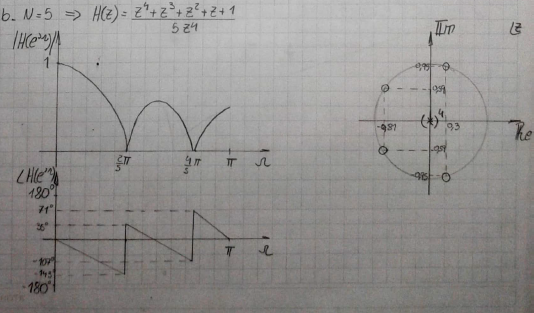 b. N=5 ⇒ H(z) = (z⁴+z³+z²+z+1)/(5z⁴)
|H(e^jΩ)|
1
2/5 π
4/5 π
π
Ω
∠H(e^jΩ)
180°
71°
36°
-107°
-145°
-180°
π
Ω
Im
z
0,95
0,59
4
-0,81
0,3
Re
-0,59
-0,95